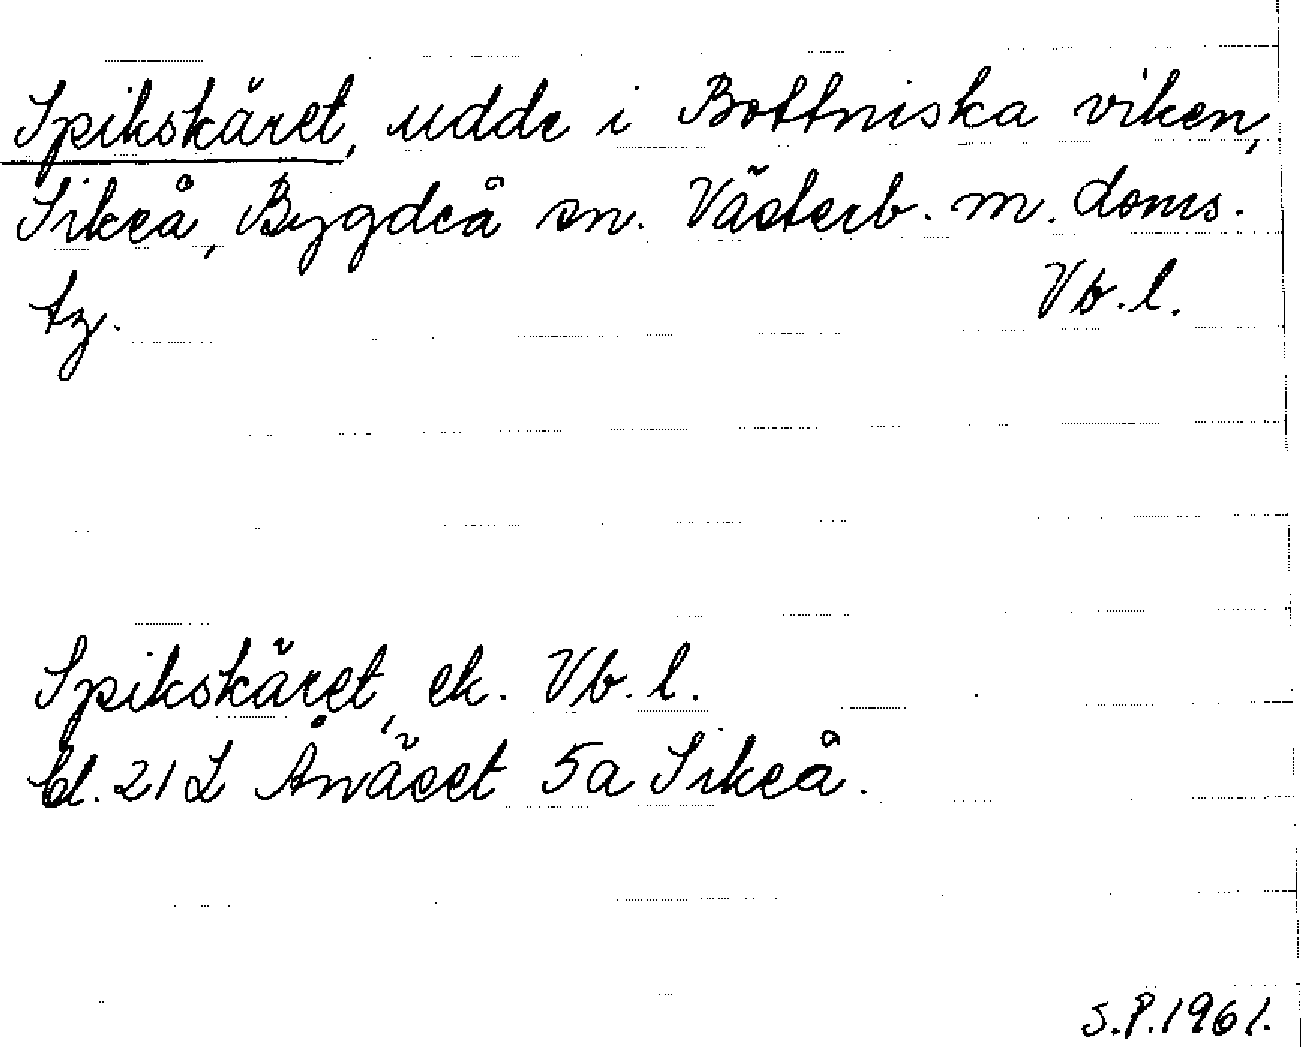 Spikskäret, udde i Bottniska viken,
Sikeå, Bygdeå sn. Västerb. m. doms.
tz. Vb.l.
Spikskäret, ek. Vb.l.
bl. 21 L Ånäset 5a Sikeå.
S.P.1961.